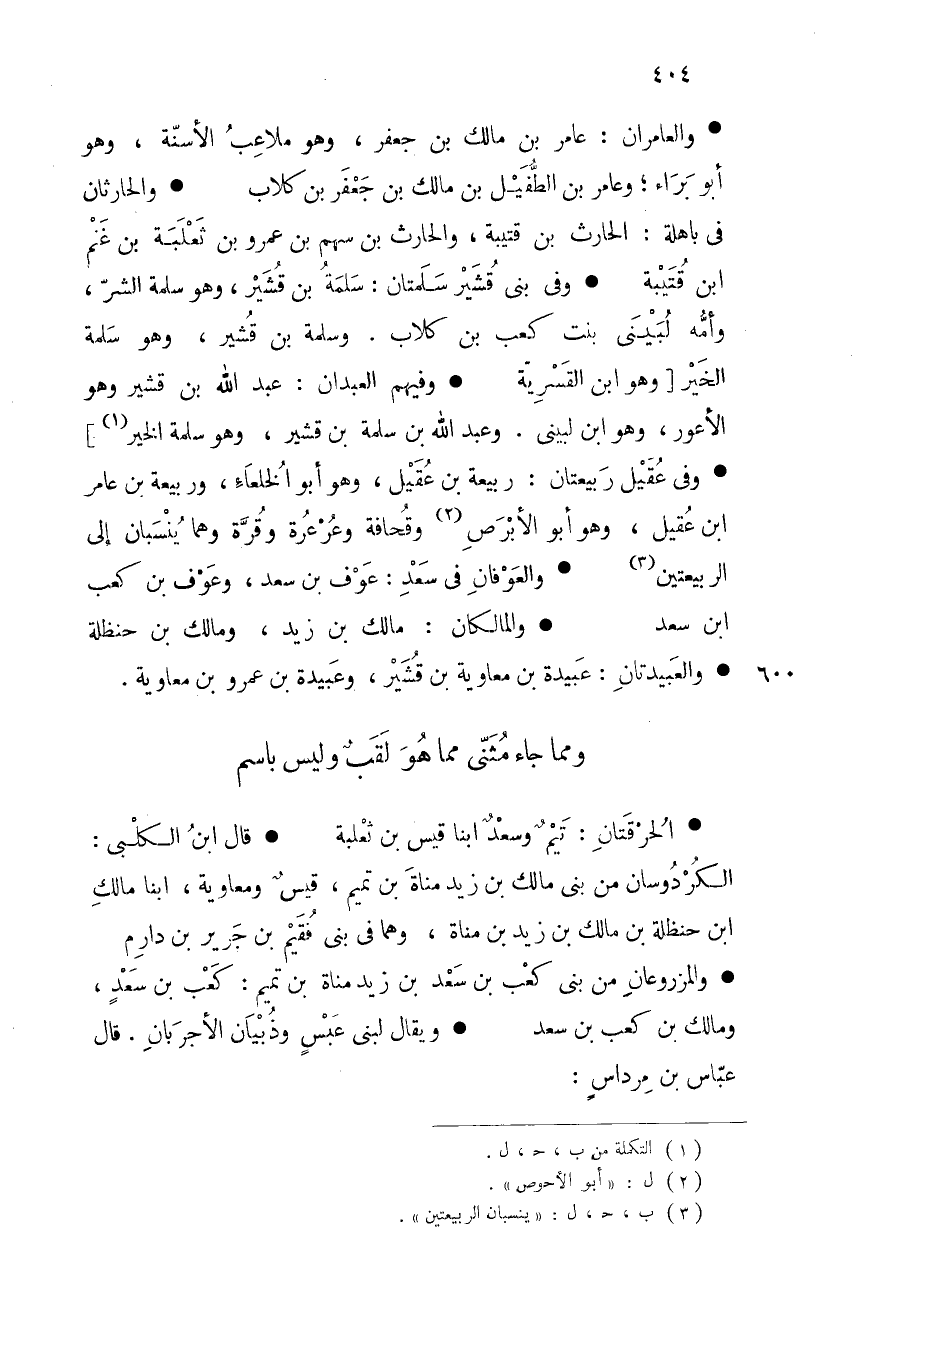 ٤٠٤
● والعامران : عامر بن مالك بن جعفر ، وهو ملاعِبُ الأسنّة ، وهو
أبو بَرَاء ؛ وعامر بن الطُّفَيْل بن مالك بن جَعْفَر بن كلاب ● والحارثان
فى باهلة : الحارث بن قتيبة ، والحارث بن سهم بن عمرو بن ثَعْلَبَة بن غَنْم
ابن قُتَيْبة ● وفى بنى قُشَيْر سَلَمتان : سَلَمَةُ بن قُشَيْر ، وهو سلمة الشرّ ،
وأمُّه لُبَيْنَى بنت كعب بن كلاب . وسلمة بن قُشير ، وهو سَلمة
الخَيْر [ وهو ابن القَسْرِيّة ● وفيهم العبدان : عبد الله بن قشير وهو
الأعور ، وهو ابن لبينى . وعبد الله بن سلمة بن قشير ، وهو سلمة الخير(١) ]
● وفى عُقَيْل رَبيعتان : ربيعة بن عُقَيْل ، وهو أبو الخُلعَاءِ ، وربيعة بن عامر
ابن عُقيل ، وهو أبو الأبْرَصِ(٢) وقُحافة وعُرْعُرة وقُرَّة وهما يُنْسَبان إلى
الربيعتين(٣) ● والعَوْفانِ فى سَعْدِ : عَوْف بن سعد ، وعَوْف بن كعب
ابن سعد ● والمالكان : مالك بن زيد ، ومالك بن حنظلة
٦٠٠ ● والعَبِيدتانِ : عَبِيدة بن معاوية بن قُشَيْر ، وعَبيدة بن عمرو بن معاوية .
ومما جاء مُثَنّى مما هُوَ لَقَبٌ وليس باسم
● الحُرْقَتَانِ : تَيْمٌ وسعْدٌ ابنا قيس بن ثعْلبة ● قال ابنُ الكلْبى :
الكُرْدُوسان من بنى مالك بن زيد مناةَ بن تميم ، قيسٌ ومعاوية ، ابنا مالكِ
ابن حنظلة بن مالك بن زيد بن مناة ، وهما فى بنى فُقَيْم بن جَرير بن دارِم
● والمزروعانِ من بنى كعْب بن سَعْد بن زيد مناة بن تميم : كَعْب بن سَعْدٍ ،
ومالك بن كعب بن سعد ● ويقال لبنى عَبْسٍ وذُبْيَان الأجرَبانِ . قال
عبّاس بن مِرداسٍ :
(١) التكملة من ب ، ح ، ل .
(٢) ل : « أبو الأحوص » .
(٣) ب ، ح ، ل : « ينسبان الربيعتين » .